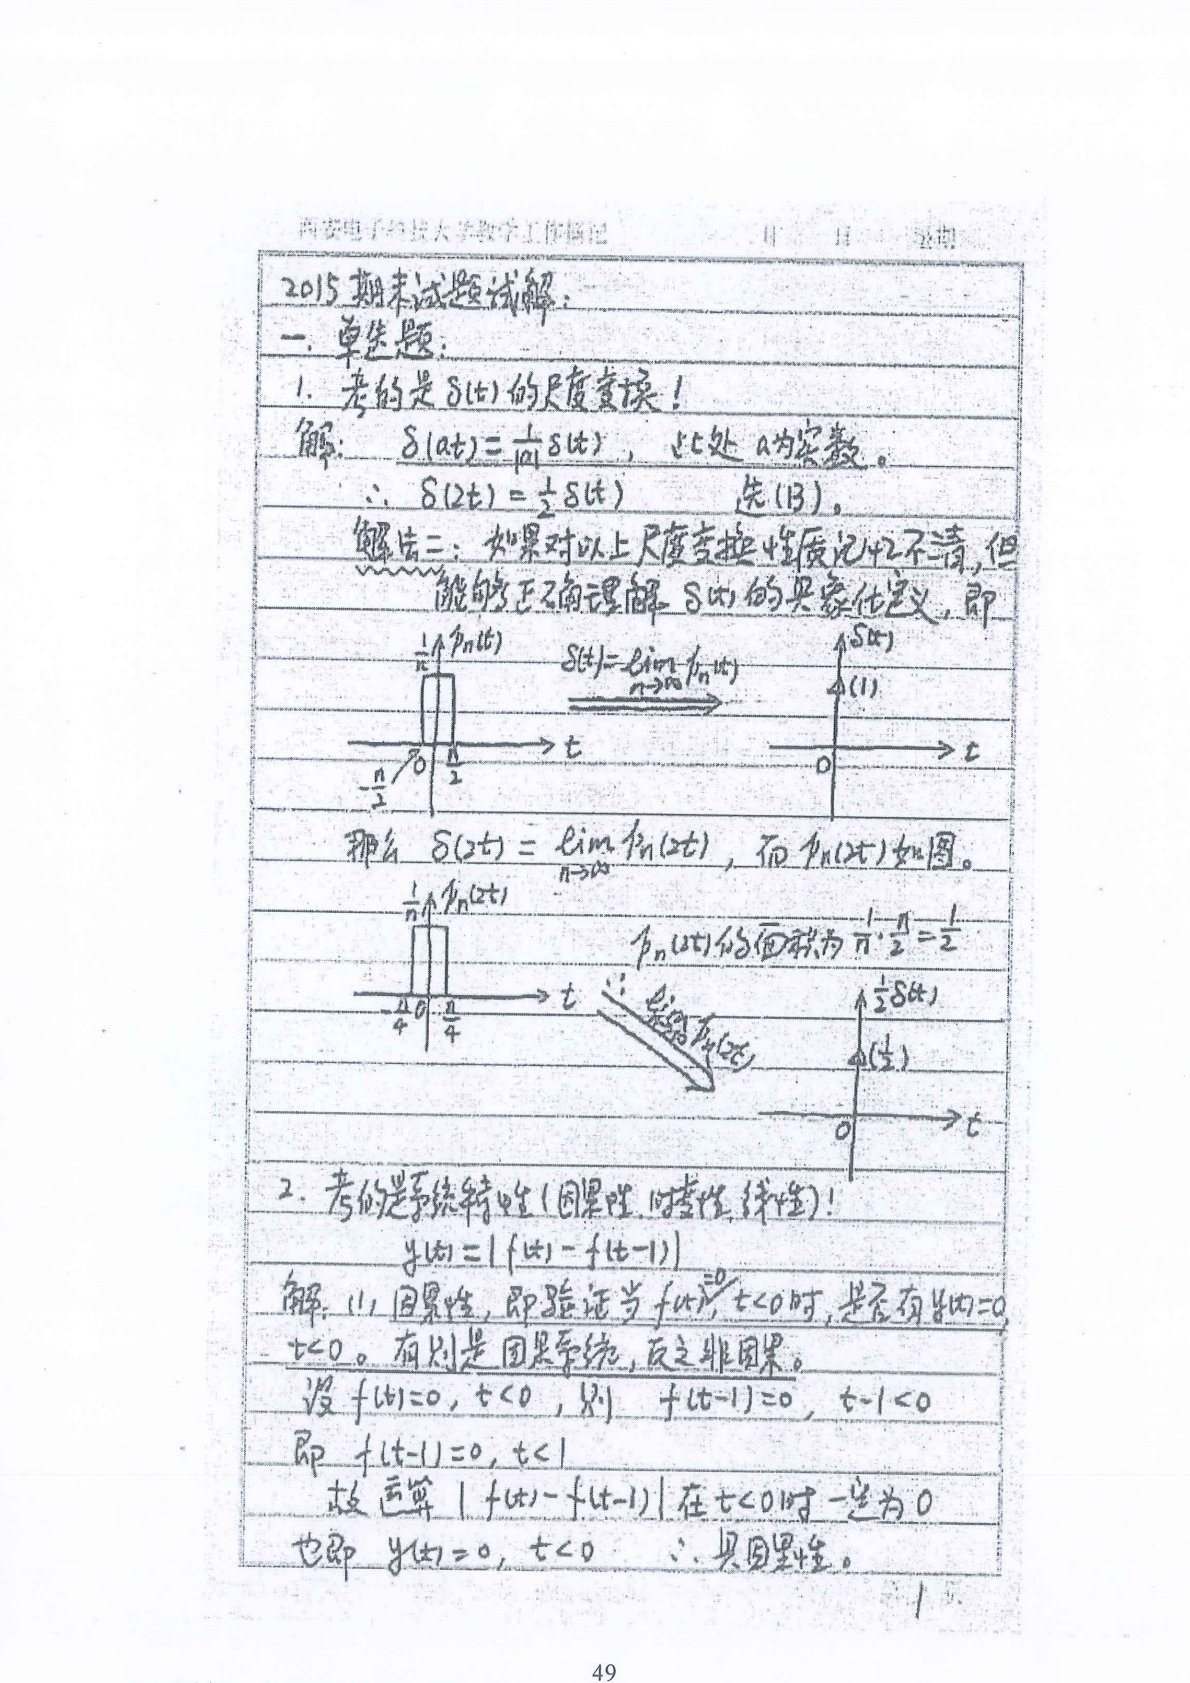 2015期末试题试解:
一. 单选题:
1. 考的是δ(t)的尺度变换!
解: δ(at)=1/|a| δ(t), 此处 a为实数。
∴ δ(2t)=1/2 δ(t) 选(B)。
解法二: 如果对以上尺度变换性质记忆不清,但
能够正确理解 δ(t)的具象化定义,即
1/n pn(t) δ(t)=lim n→∞ pn(t) δ(t)
(1)
t t
-n/2 0 n/2 0
那么 δ(2t)= lim n→∞ pn(2t), 而 pn(2t)如图。
1/n pn(2t)
pn(2t)的面积为 1/n·n/2=1/2
∴ lim pn(2t) 1/2 δ(t)
t
-n/4 0 n/4 (1/2)
0 t
2. 考的是系统特性(因果性、时变性、线性)!
y(t)=|f(t)-f(t-1)|
解: (1) 因果性,即验证当 f(t)=0, t<0时,是否有y(t)=0,
t<0。有则是因果系统,反之非因果。
设 f(t)=0, t<0, 则 f(t-1)=0, t-1<0
即 f(t-1)=0, t<1
故运算 |f(t)-f(t-1)| 在 t<0时一定为0
也即 y(t)=0, t<0 ∴ 具因果性。
1
49